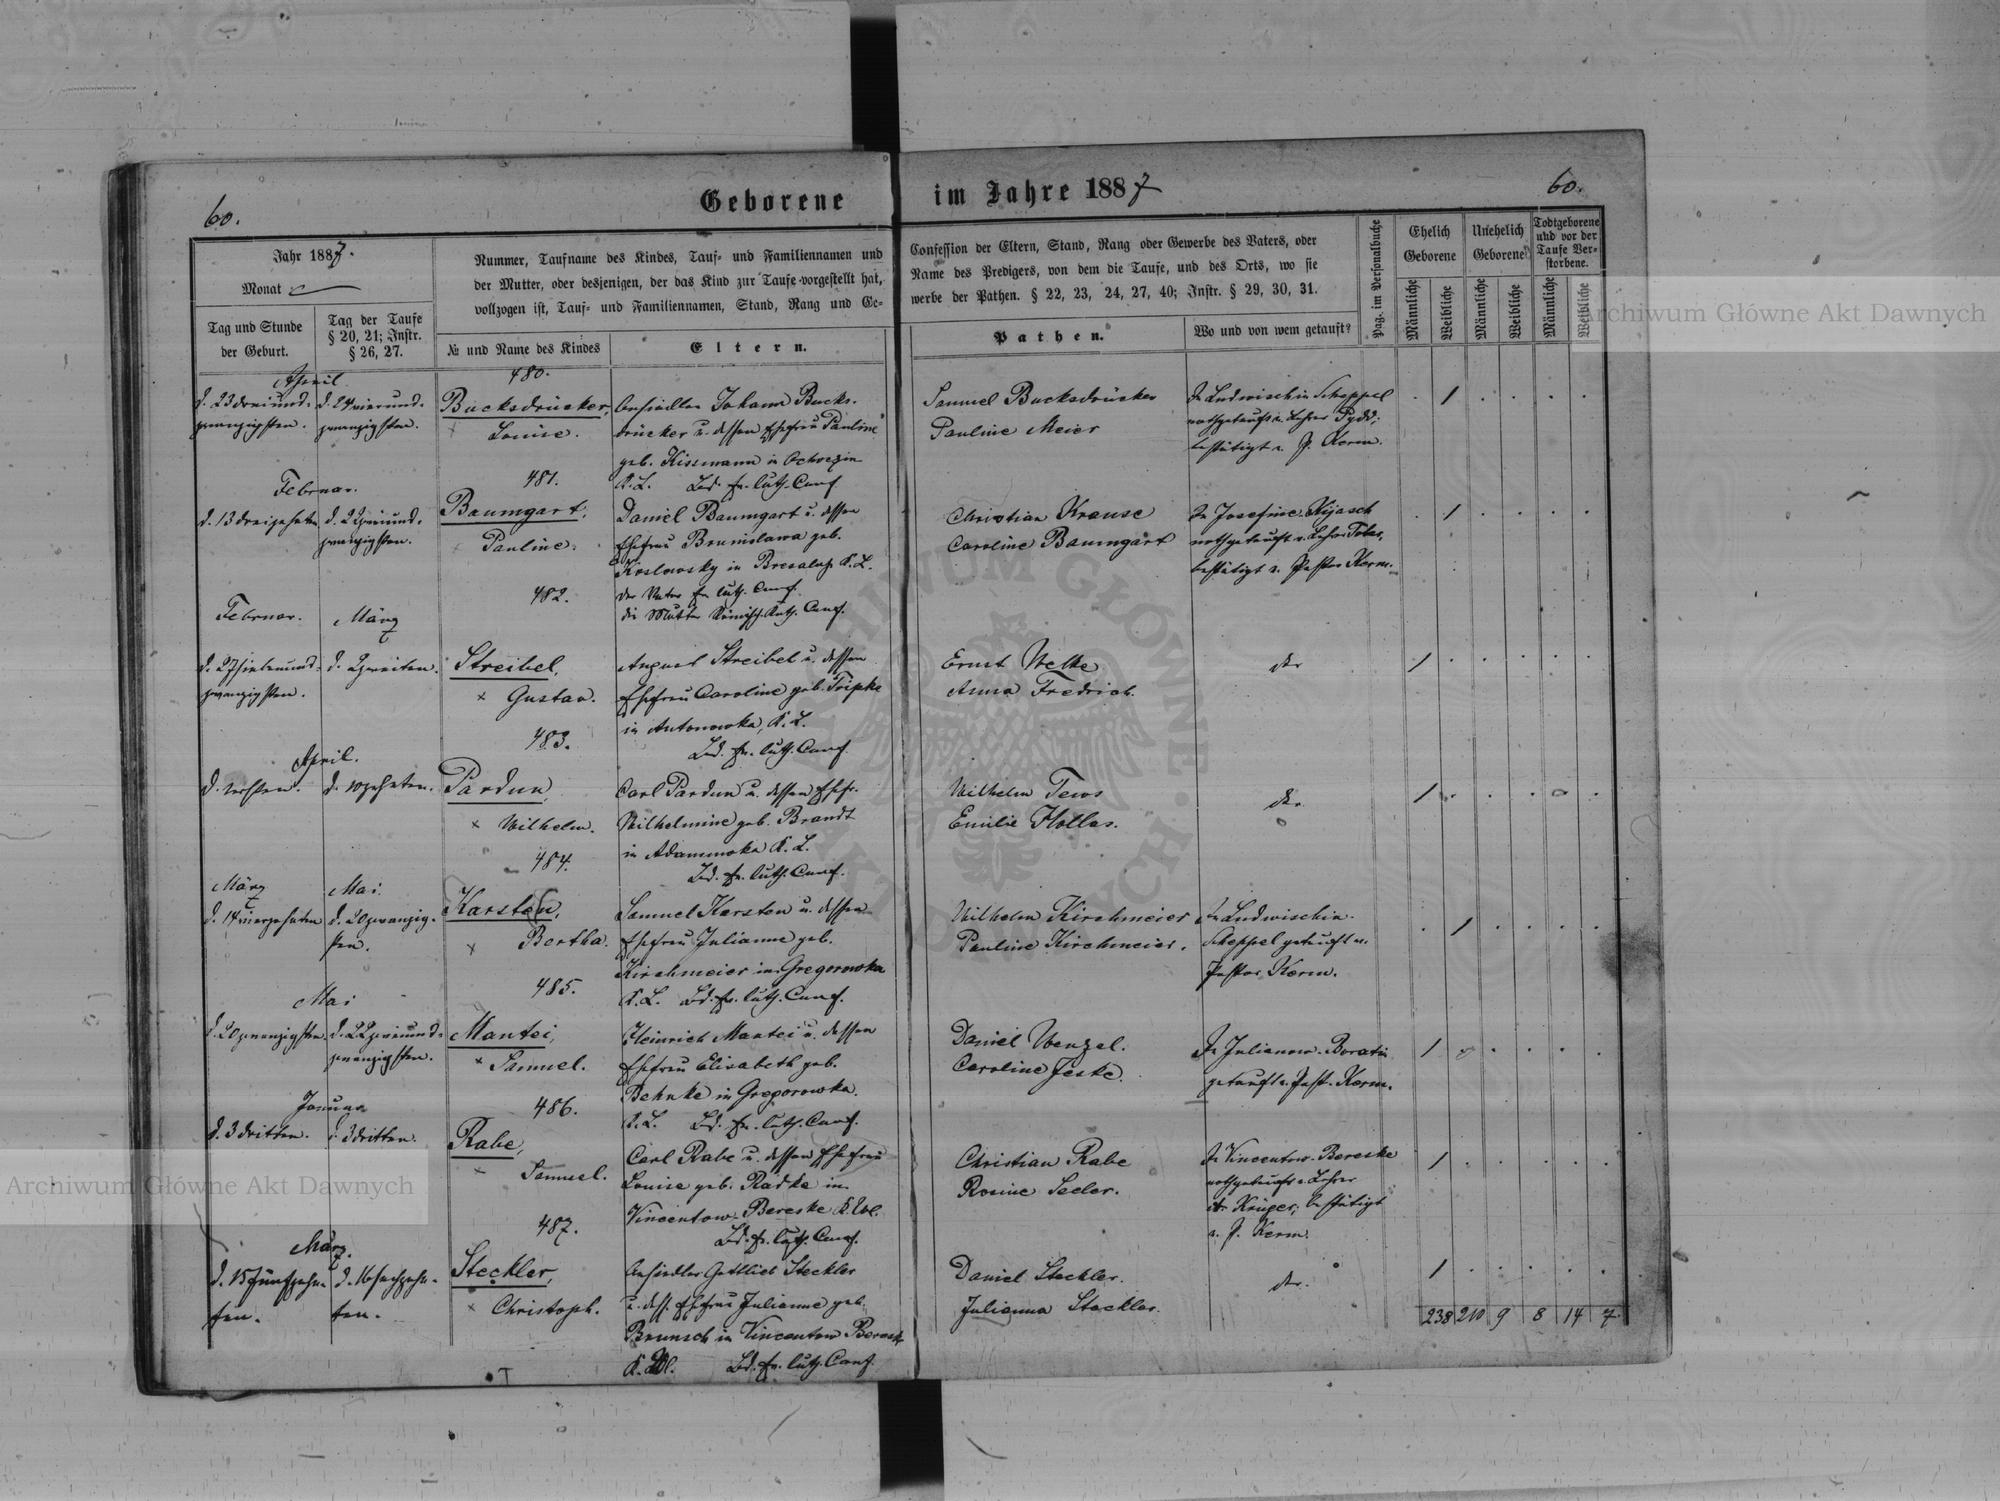 60.
Geborene
im Jahre 1887
60.
Jahr 1887.
Monat
Tag und Stunde
der Geburt.
Tag der Taufe
§ 20, 21; Instr.
§ 26, 27.
Nummer, Taufname des Kindes, Tauf- und Familiennamen und
der Mutter, oder desjenigen, der das Kind zur Taufe vorgestellt hat,
vollzogen ist, Tauf- und Familiennamen, Stand, Rang und Ge-
№ und Name des Kindes
Eltern.
Confession der Eltern, Stand, Rang oder Gewerbe des Vaters, oder
Name des Predigers, von dem die Taufe, und des Orts, wo sie
werbe der Pathen. § 22, 23, 24, 27, 40; Instr. § 29, 30, 31.
Pathen.
Wo und von wem getauft?
Pag. im Personalbuche
Ehelich
Geborene
Unehelich
Geborene
Todtgeborene
und vor der
Taufe Ver-
storbene.
Männliche
Weibliche
Männliche
Weibliche
Männliche
Weibliche
April
d. 23 dreiund-
zwanzigsten.
d. 24 vierund-
zwanzigsten.
480.
Bucksdrücker,
Louise.
Ansiedler Johann Bucks-
drücker u. dessen Ehefrau Pauline
geb. Kissmann in
K. L. Bd. ev. luth. Conf.
Samuel Bucksdrücker
Pauline Meier
In Ludwischin Scheppel
nothgetauft v. Lehrer
bestätigt v. P. Kerm.
Februar.
d. 13 dreizehnten
d. 22 zweiund-
zwanzigsten.
481.
Baumgart,
Pauline.
Daniel Baumgart u. dessen
Ehefrau Bronislawa geb.
Koslowsky in K. L.
der Vater ev. luth. Conf.
die Mutter Römisch-Kath. Conf.
Christian Krause
Caroline Baumgart
In Josefine
nothgetauft v. Lehrer
bestätigt v. Pastor Kerm.
Februar.
März
d. 27 siebenund-
zwanzigsten.
d. 2 zweiten.
482.
Streibel,
× Gustav.
August Streibel u. dessen
Ehefrau Caroline geb. Tripke
in Antonowka, K. L.
Bd. ev. luth. Conf.
Ernst Welke
Anna Fredrich.
April.
d. ersten.
d. 10 zehnten.
483.
Pardun,
× Wilhelm.
Carl Pardun u. dessen Ehefr.
Wilhelmine geb. Brandt
in Adamowka K. L.
Bd. ev. luth. Conf.
Wilhelm Tews
Emilie Hollas.
März
Mai
d. 14 vierzehnten
d. 20 zwanzig-
sten.
484.
Karsten,
× Bertha.
Samuel Karsten u. dessen
Ehefrau Julianne geb.
Kirchmeier in Gregorowka
K. L. Bd. ev. luth. Conf.
Wilhelm Kirchmeier
Pauline Kirchmeier.
In Ludwischin-
Scheppel getauft v.
Pastor Kerm.
Mai
d. 20 zwanzigsten
d. 22 zweiund-
zwanzigsten.
485.
Mantei,
× Samuel.
Heinrich Mantei u. dessen
Ehefrau Elisabeth geb.
Behnke in Gregorowka.
K. L. Bd. ev. luth. Conf.
Daniel Wenzel.
Caroline Jeske.
In Julianow-Boratin
getauft v. Past. Kerm.
Januar
d. 3 dritten.
d. 3 dritten.
486.
Rabe,
Samuel.
Carl Rabe u. dessen Ehefrau
Louise geb. Radke in
Vincentow-Bereske K. Wl.
Bd. ev. luth. Conf.
Christian Rabe
Rosine Seeler.
In Vincentow-Bereske
nothgetauft v. Lehrer
Krüger; bestätigt
v. P. Kerm.
März.
d. 15 fünfzehn-
ten.
d. 16 sechzehn-
ten.
487.
Steckler,
× Christoph.
Ansiedler Gottlieb Steckler
u. dess. Ehefrau Julianne geb.
Brunsch in Vincentow Bereske
K. Wl. Bd. ev. luth. Conf.
Daniel Steckler.
Julianna Steckler.
238 210 9 8 14 7
Archiwum Główne Akt Dawnych
Archiwum Główne Akt Dawnych